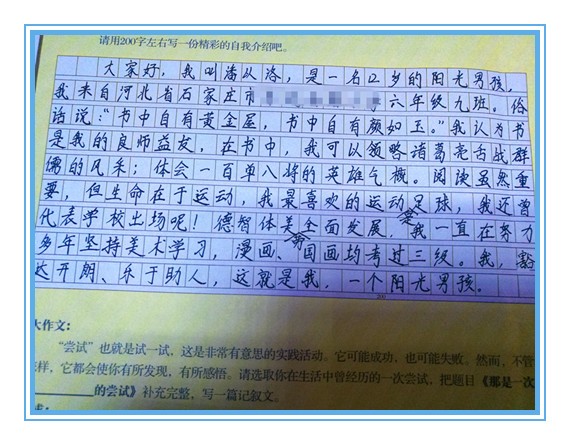 请用200字左右写一份精彩的自我介绍吧。
大家好，我叫潘从洛，是一名12岁的阳光男孩，
我来自河北省石家庄市六年级九班。俗
话说：“书中自有黄金屋，书中自有颜如玉。”我认为书
是我的良师益友，在书中，我可以领略诸葛亮舌战群
儒的风采；体会一百单八将的英雄气概。阅读虽然重
要，但生命在于运动，我最喜欢的运动是足球，我还曾
代表学校出场呢！德智体美要全面发展，我一直在努力
多年坚持美术学习，漫画、国画均考过三级。我，豁
达开朗、乐于助人，这就是我，一个阳光男孩。
200
大作文：
“尝试”也就是试一试，这是非常有意思的实践活动。它可能成功，也可能失败。然而，不管
怎样，它都会使你有所发现，有所感悟。请选取你在生活中曾经历的一次尝试，把题目《那是一次
的尝试》补充完整，写一篇记叙文。